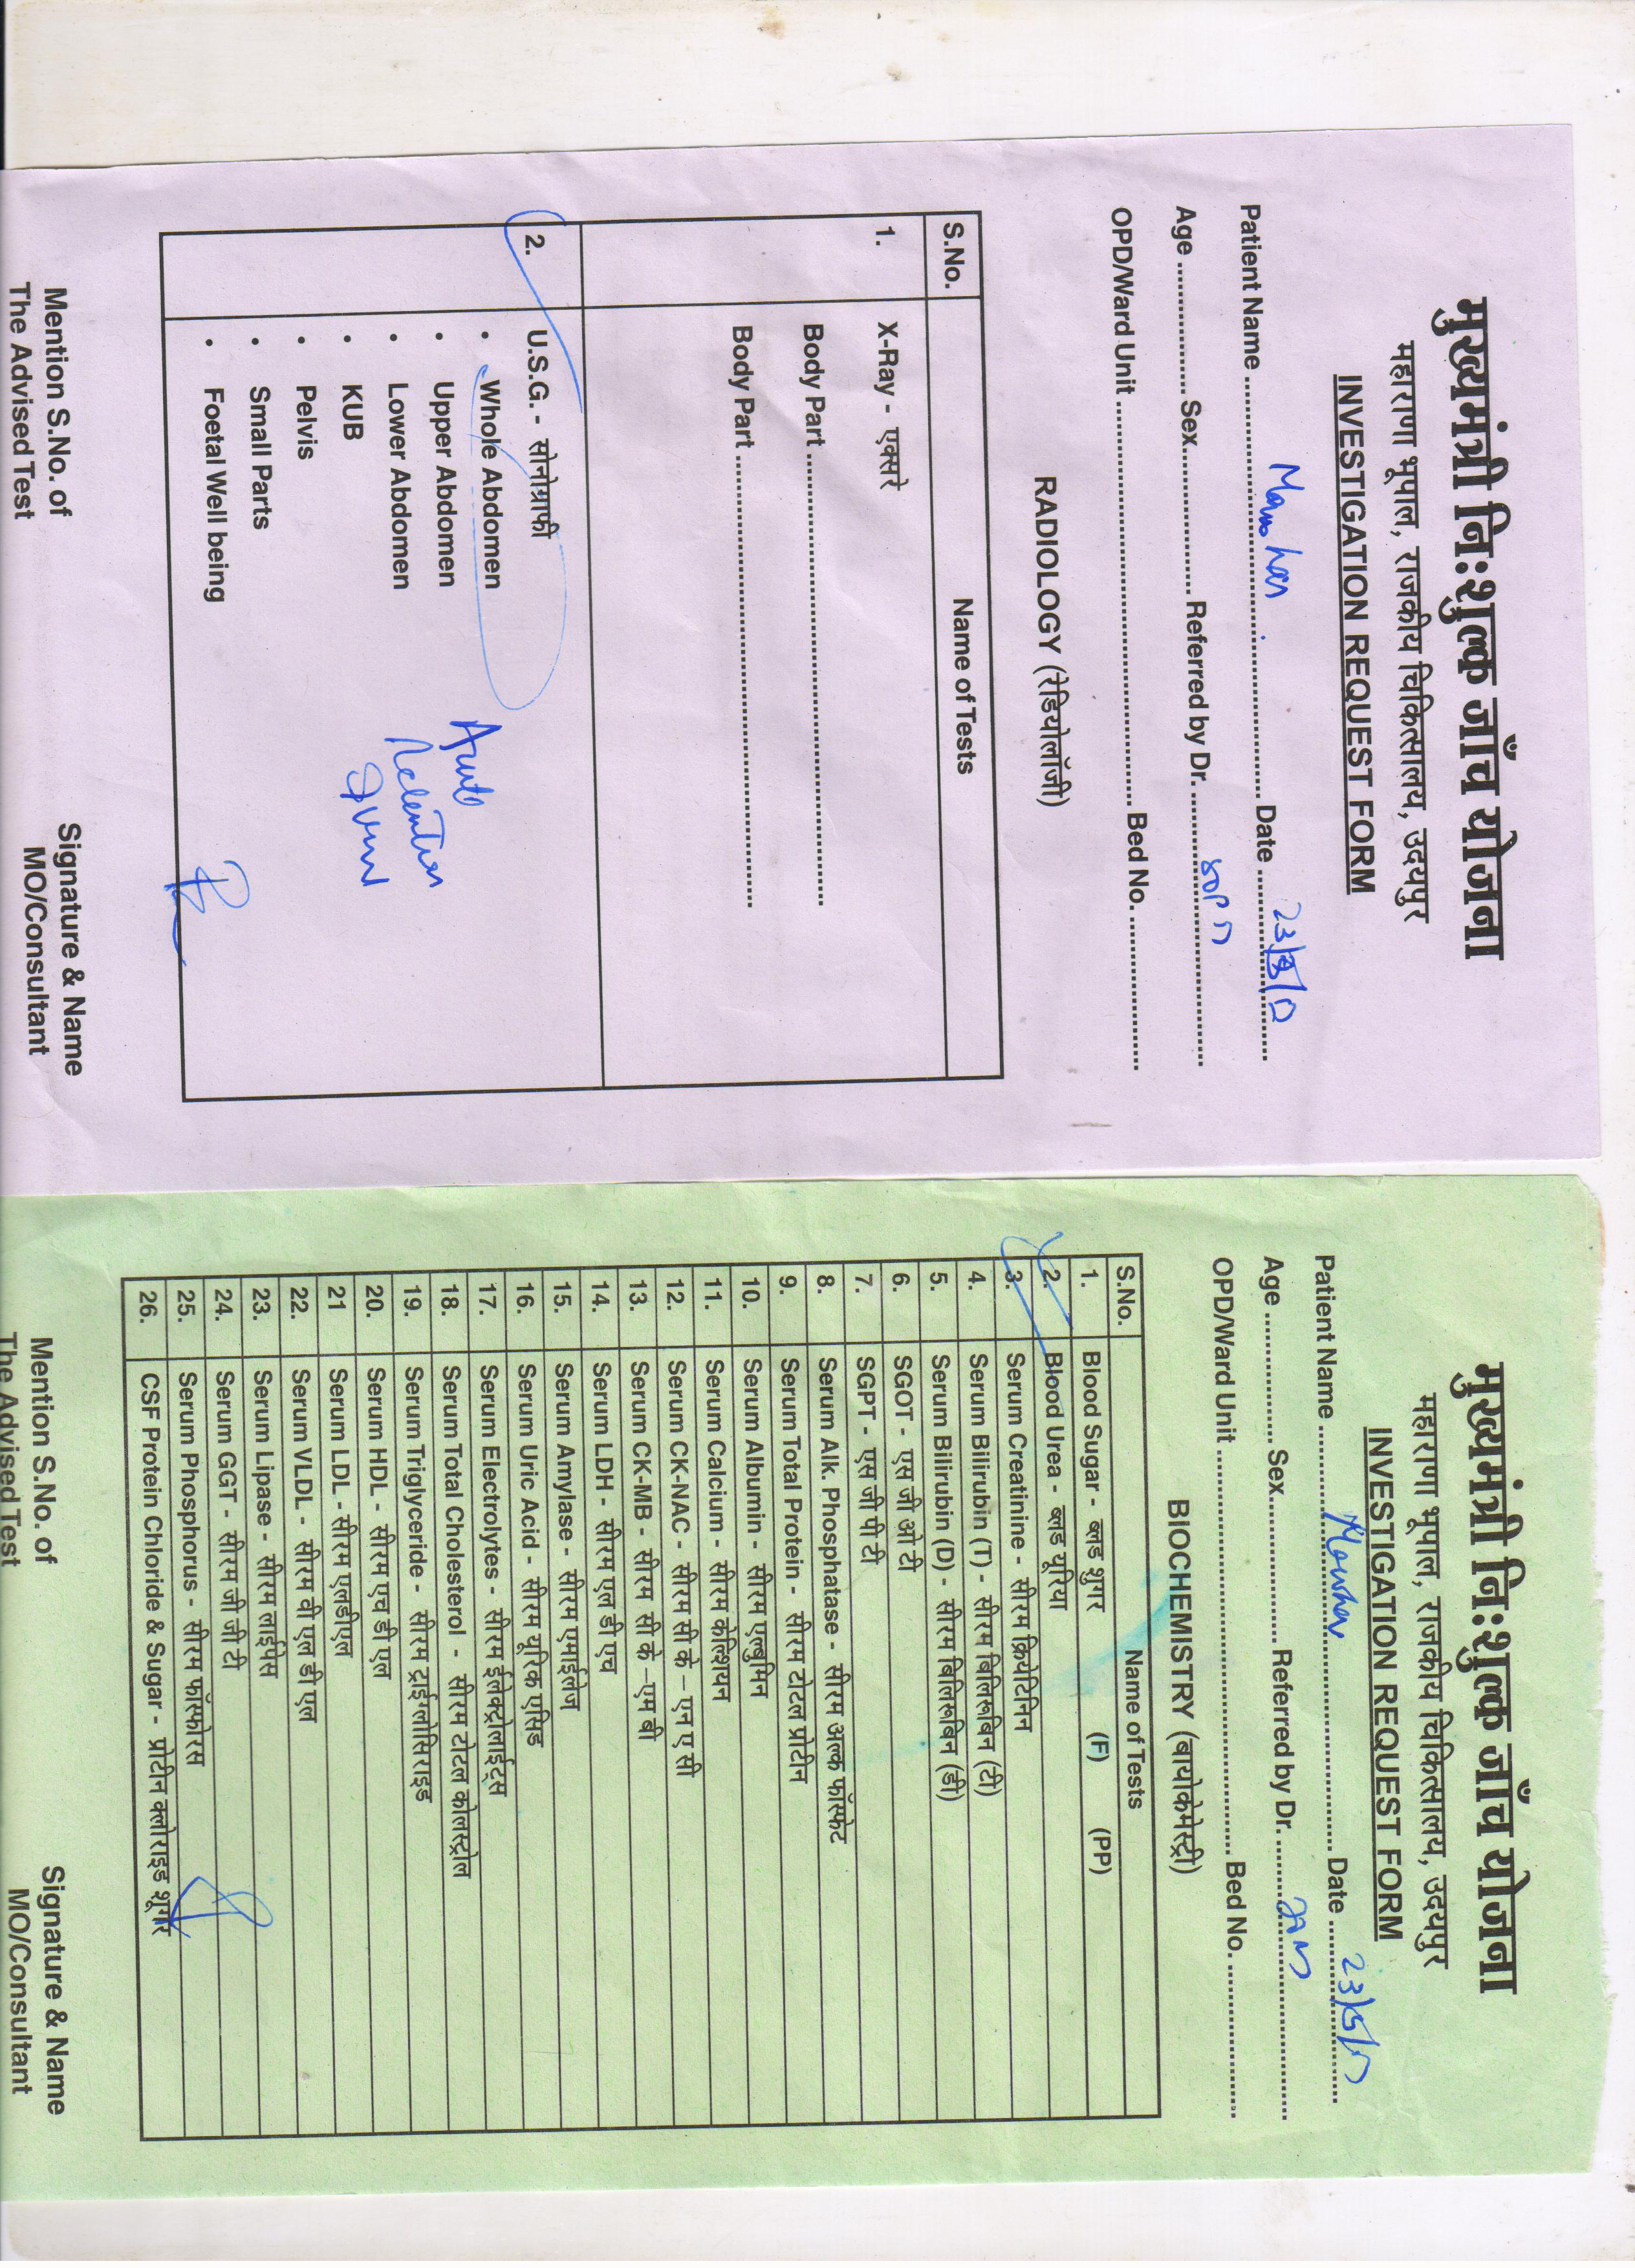 मुख्यमंत्री नि:शुल्क जाँच योजना
महाराणा भूपाल, राजकीय चिकित्सालय, उदयपुर
INVESTIGATION REQUEST FORM
Patient Name Manohar Date
Age Sex Referred by Dr.
OPD/Ward Unit Bed No.
RADIOLOGY (रेडियोलॉजी)
S.No. Name of Tests
1. X-Ray - एक्सरे
Body Part
Body Part
2. U.S.G. - सोनोग्राफी
• Whole Abdomen
• Upper Abdomen
Acute
• Lower Abdomen
Retention
• KUB
• Pelvis
• Small Parts
• Foetal Well being
Mention S.No. of
The Advised Test
Signature & Name
MO/Consultant
मुख्यमंत्री नि:शुल्क जाँच योजना
महाराणा भूपाल, राजकीय चिकित्सालय, उदयपुर
INVESTIGATION REQUEST FORM
Patient Name Manohar Date
Age Sex Referred by Dr.
OPD/Ward Unit Bed No.
BIOCHEMISTRY (बायोकेमेस्ट्री)
S.No. Name of Tests
1. Blood Sugar - ब्लड शुगर (F) (PP)
2. Blood Urea - ब्लड यूरिया
3. Serum Creatinine - सीरम क्रियेटिनिन
4. Serum Bilirubin (T) - सीरम बिलिरूबिन (टी)
5. Serum Bilirubin (D) - सीरम बिलिरूबिन (डी)
6. SGOT - एस जी ओ टी
7. SGPT - एस जी पी टी
8. Serum Alk. Phosphatase - सीरम अल्क फॉस्फेट
9. Serum Total Protein - सीरम टोटल प्रोटीन
10. Serum Albumin - सीरम एल्बुमिन
11. Serum Calcium - सीरम केल्शियन
12. Serum CK-NAC - सीरम सी के – एन ए सी
13. Serum CK-MB - सीरम सी के –एम बी
14. Serum LDH - सीरम एल डी एच
15. Serum Amylase - सीरम एमाईलेज
16. Serum Uric Acid - सीरम यूरिक एसिड
17. Serum Electrolytes - सीरम ईलेक्ट्रोलाईट्स
18. Serum Total Cholesterol - सीरम टोटल कोलस्ट्रोल
19. Serum Triglyceride - सीरम ट्राईलोसिराइड
20. Serum HDL - सीरम एच डी एल
21 Serum LDL - सीरम एलडीएल
22. Serum VLDL - सीरम वी एल डी एल
23. Serum Lipase - सीरम लाईपेस
24. Serum GGT - सीरम जी जी टी
25. Serum Phosphorus - सीरम फॉस्फोरस
26. CSF Protein Chloride & Sugar - प्रोटीन क्लोराइड शूगर
Mention S.No. of
The Advised Test
Signature & Name
MO/Consultant